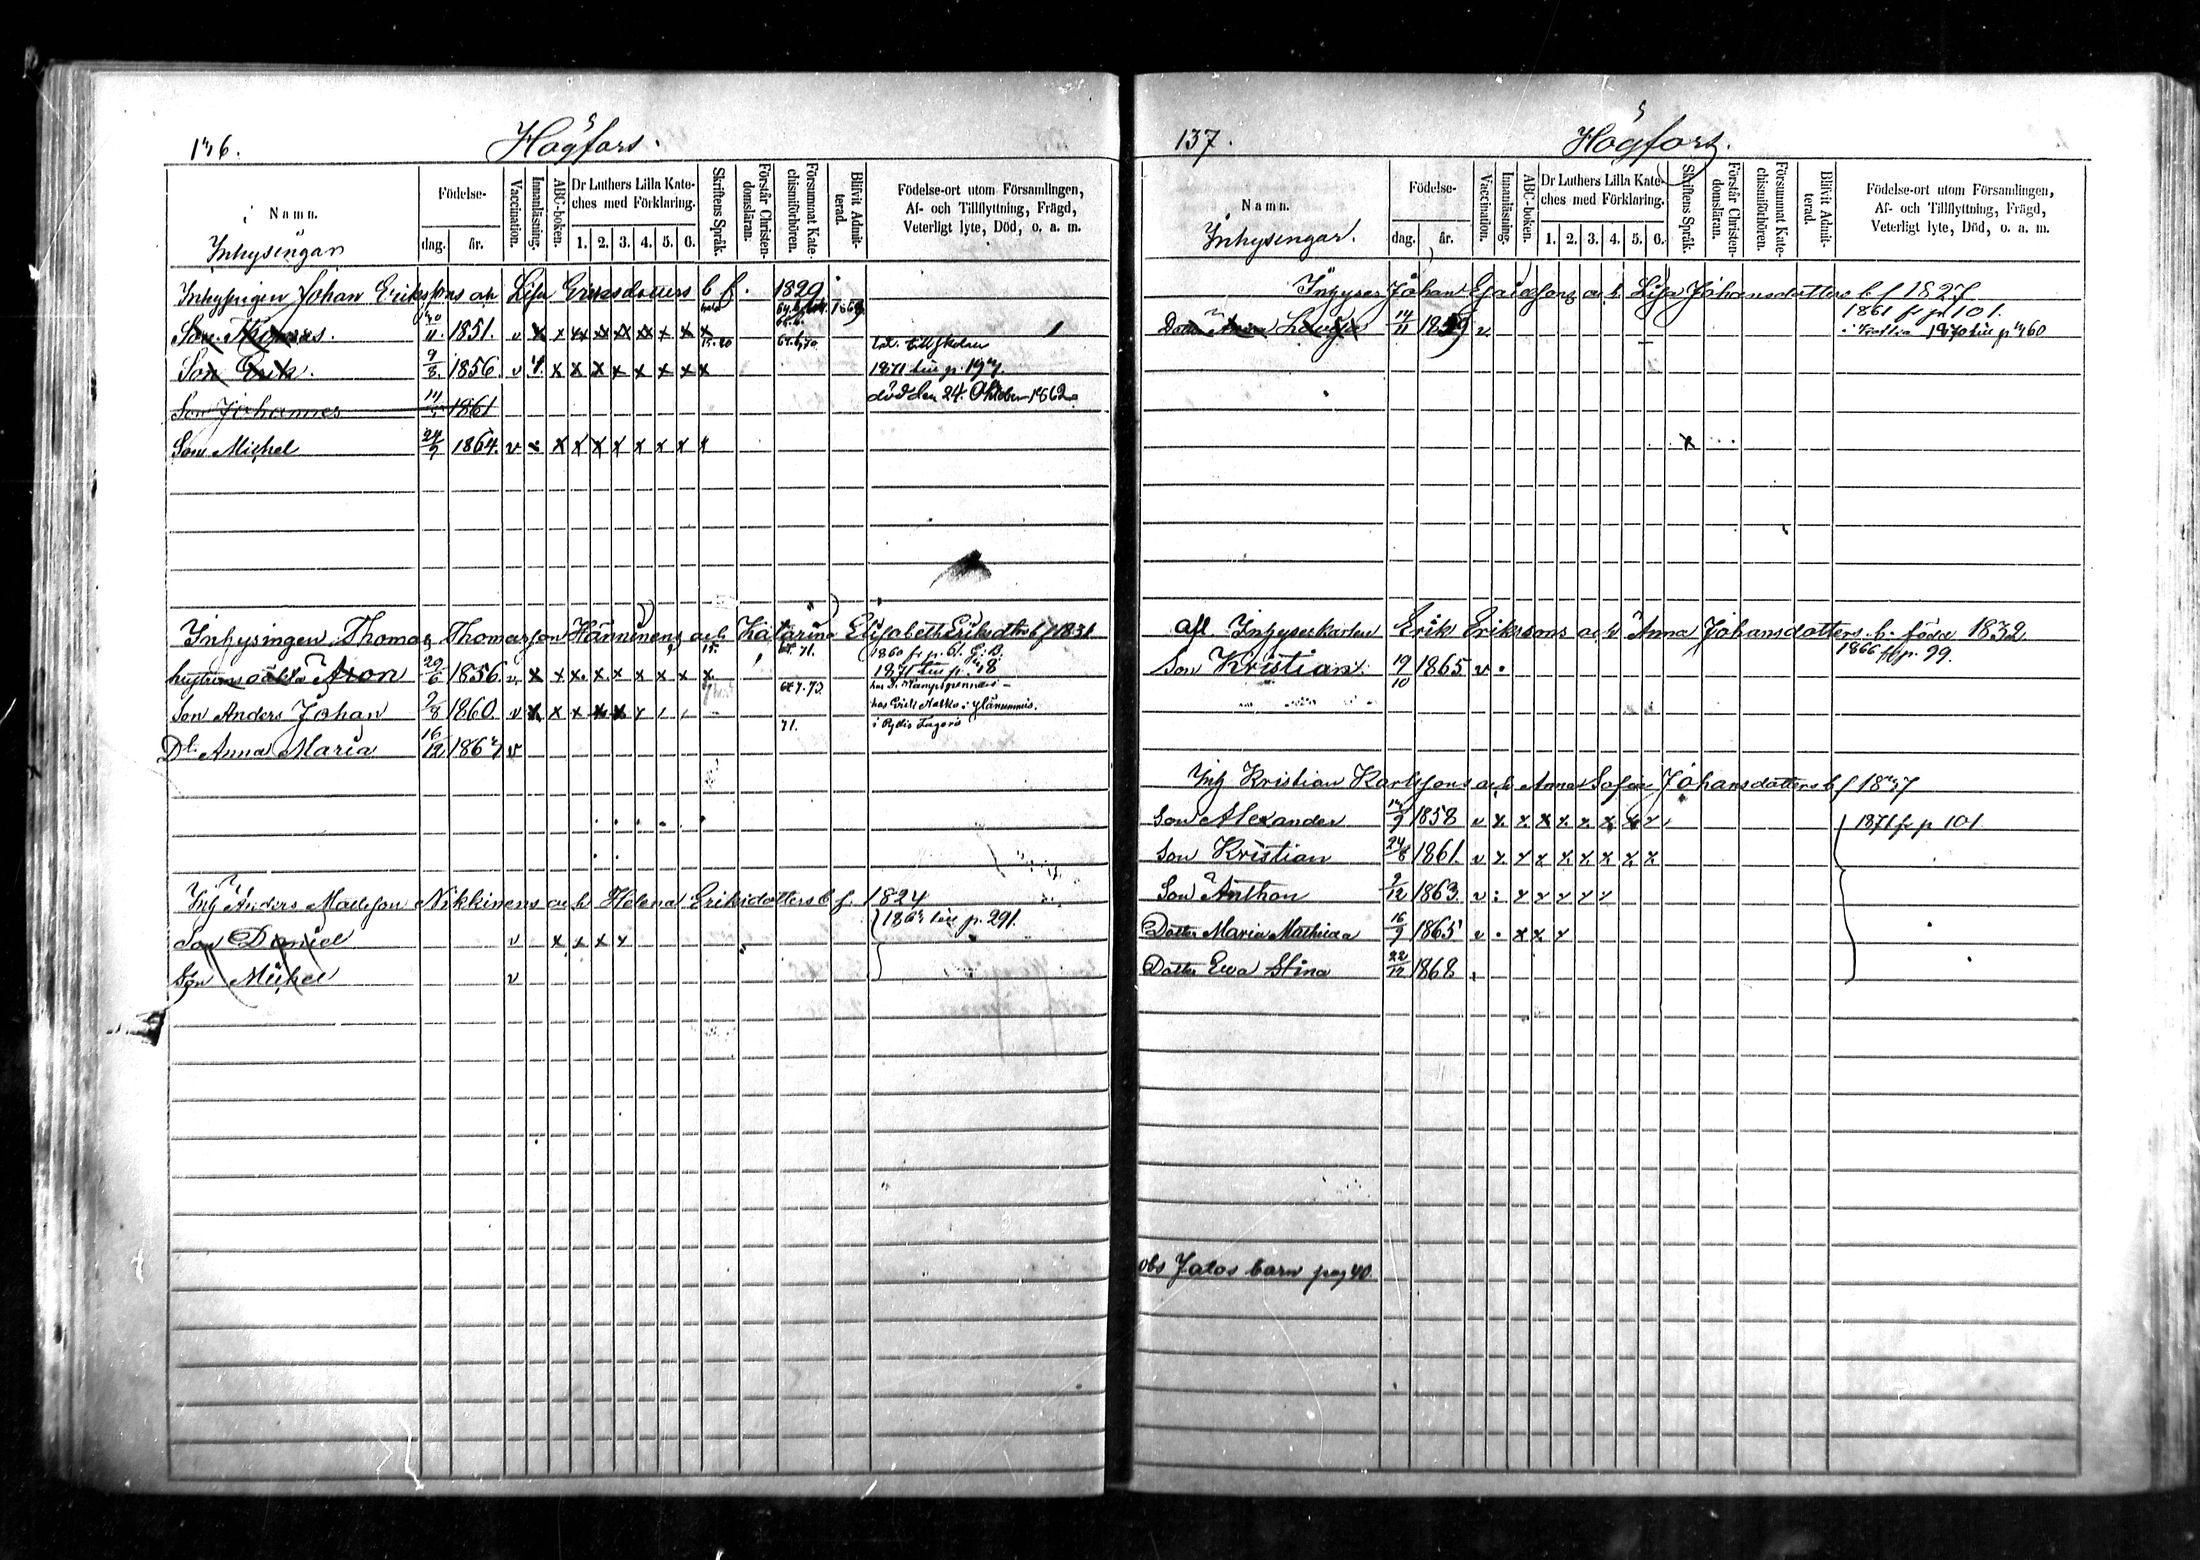 136.
Högfors.
Namn.
Inhysingar
Födelse-
dag.
år.
Vaccination.
Innanläsning.
ABC-boken.
Dr Luthers Lilla Kate-
ches med Förklaring.
1. 2. 3. 4. 5. 6.
Skriftens Språk.
Förstår Christen-
domsläran.
Försummat Kate-
chismiförhören.
Blifvit Admit-
terad.
Födelse-ort utom Församlingen,
Af- och Tillflyttning, Frägd,
Veterligt lyte, Död, o. a. m.
Inhysingen Johan Erikssons och Lisa Eriksdotters b f. 1829
Son Thomas. 11. 1851. v x x x x x x x x x
Son Erik. 9/8 1856. v x x x x x x x x
1871 till p. 197
Son Johannes 1861 död den 24 Oktober 1862
Son Michel 24/9 1864. v x x x x x x x x
Inhysingen Thomas Thomasson Hänninens och Katarina Elisabeth Eriksdtrs b f 1831
1860 fr p. 61.
Aron 29/6 1856. v x x x x x x x x x
Son Anders Johan 2/8 1860. v x x x x x
71. i Pyttis
Dr Anna Maria 16/12 186 v
Inh Anders Mattsson Nikkinens och Helena Eriksdotters b f. 1824
till p. 291.
Son Daniel v x x x x
Son Michel v
137.
Högfors.
Namn.
Inhysingar.
Födelse-
dag.
år.
Vaccination.
Innanläsning.
ABC-boken.
Dr Luthers Lilla Kate-
ches med Förklaring.
1. 2. 3. 4. 5. 6.
Skriftens Språk.
Förstår Christen-
domsläran.
Försummat Kate-
chismiförhören.
Blifvit Admit-
terad.
Födelse-ort utom Församlingen,
Af- och Tillflyttning, Frägd,
Veterligt lyte, Död, o. a. m.
Inhyses Johan och Lisa Johansdotters b f 1827
1861 fr p. 101.
Dotter Lovisa 14/11 1859 v
Inhyseskarlen Erik Erikssons och Anna Johansdotters b. födda 1832
1866 fr p. 99.
Son Kristian. 19/10 1865 v
Inh Kristian Karlssons och Anna Sofia Johansdotters b f
Son Alexander 1858 v x x x x x x x x
1871 fr p 101
Son Kristian 24/8 1861. v x x x x x x x x
Son Anthon 9/12 1863. v x x x x x
Dotter Maria Mathilda 16/9 1865 v x x x
Dotter Eva Stina 22/12 1868
obs Jatos barn pag 40.